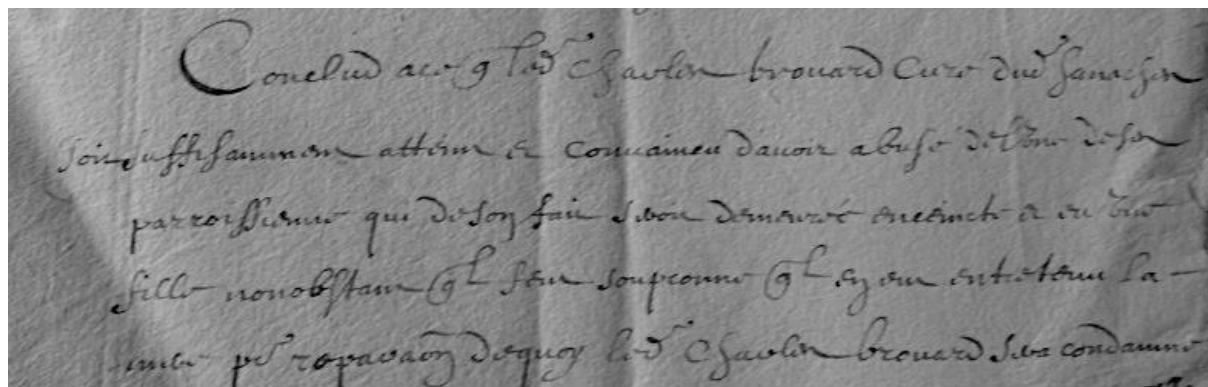 Conclud ace ql led Charles brouard Cure dud
soit suffisamment atteint et convaincu davoir abusé de lune de ses
parroissienne qui de son fait seroit demeurée enceincte et eu une
fille nonobstant ql feut soupconne ql en eut entretenu la
mere pr reparaon dequoy led Charles brouard sera condamne